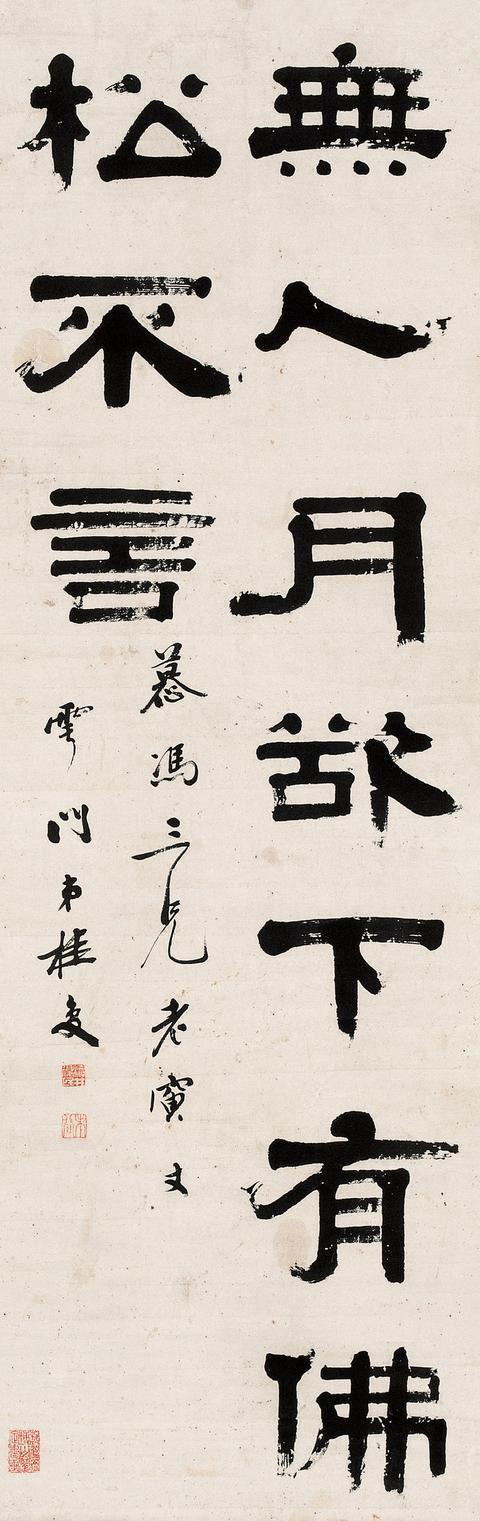 無人月欲下有佛
松不言
慕馮三兄老寅丈
雩門弟桂馥